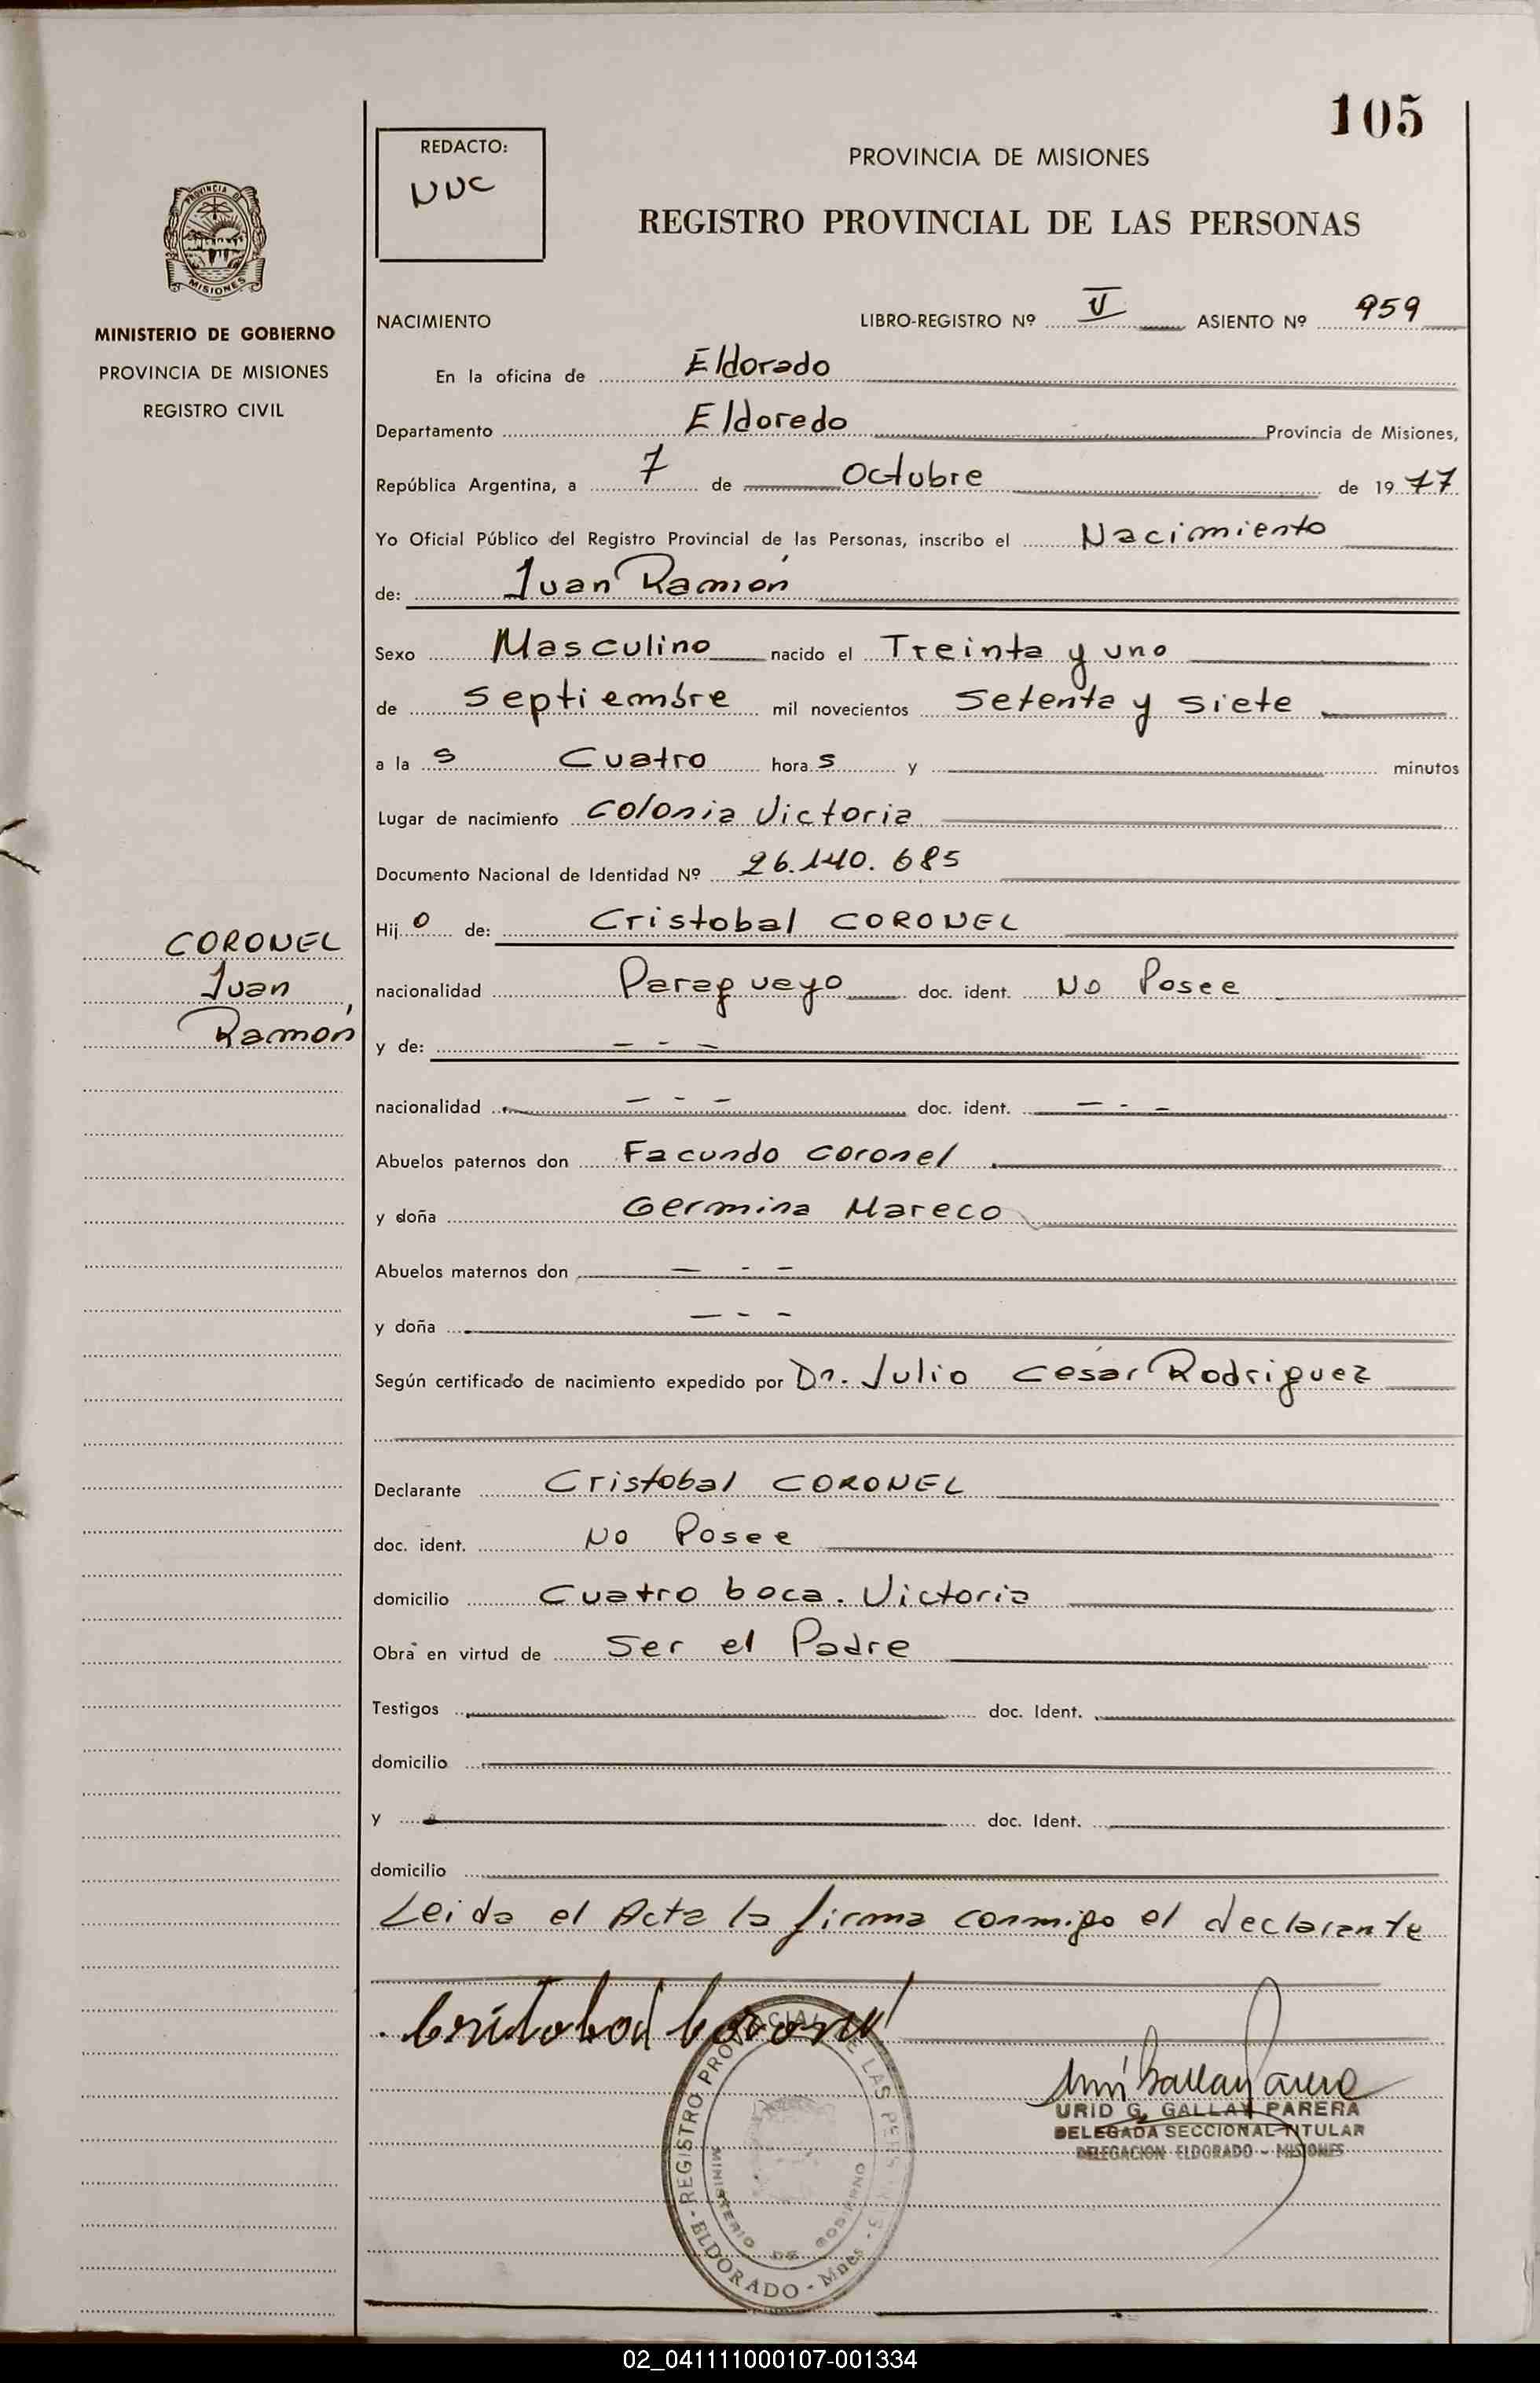 105
REDACTO:
NNC
PROVINCIA DE MISIONES
REGISTRO PROVINCIAL DE LAS PERSONAS
PROVINCIA DE
MISIONES
MINISTERIO DE GOBIERNO
PROVINCIA DE MISIONES
REGISTRO CIVIL
NACIMIENTO LIBRO-REGISTRO Nº V ASIENTO Nº 959
En la oficina de Eldorado
Departamento Eldoredo Provincia de Misiones,
República Argentina, a 7 de Octubre de 1977
Yo Oficial Público del Registro Provincial de las Personas, inscribo el Nacimiento
de: Juan Ramón
Sexo Masculino nacido el Treinta y uno
de septiembre mil novecientos Setenta y siete
a la s Cuatro hora s y minutos
Lugar de nacimiento Colonia Victoria
Documento Nacional de Identidad Nº 26.140.685
Hij o de: Cristobal CORONEL
CORONEL
Juan
Ramón
nacionalidad Paragueyo doc. ident. No Posee
y de: - - -
nacionalidad - - - doc. ident. - - -
Abuelos paternos don Facundo Coronel
y doña Germina Mareco
Abuelos maternos don - - -
y doña - - -
Según certificado de nacimiento expedido por Dr. Julio César Rodriguez
Declarante Cristobal CORONEL
doc. ident. No Posee
domicilio Cuatro boca. Victoria
Obra en virtud de Ser el Padre
Testigos doc. Ident.
domicilio
y doc. Ident.
domicilio
Leida el Acta la firma conmigo el declarante
Cristobal Coronel
REGISTRO PROVINCIAL DE LAS PERSONAS - ELDORADO - Mnes -
MINISTERIO DE GOBIERNO
URID G. GALLAY PARERA
DELEGADA SECCIONAL TITULAR
DELEGACION ELDORADO - MISIONES
02_041111000107-001334